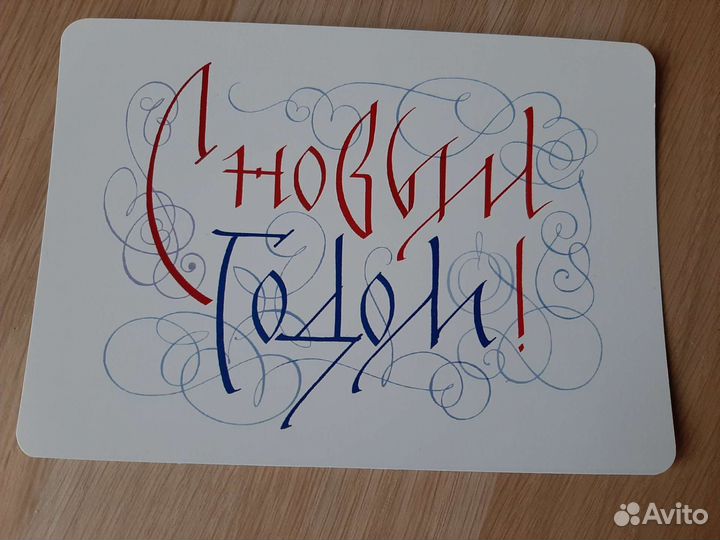 С новым
Годом!
Avito